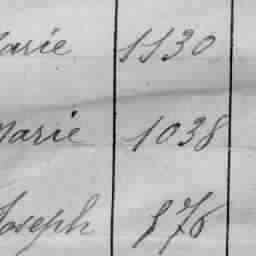 Marie 1130
Marie 1038
Joseph 876